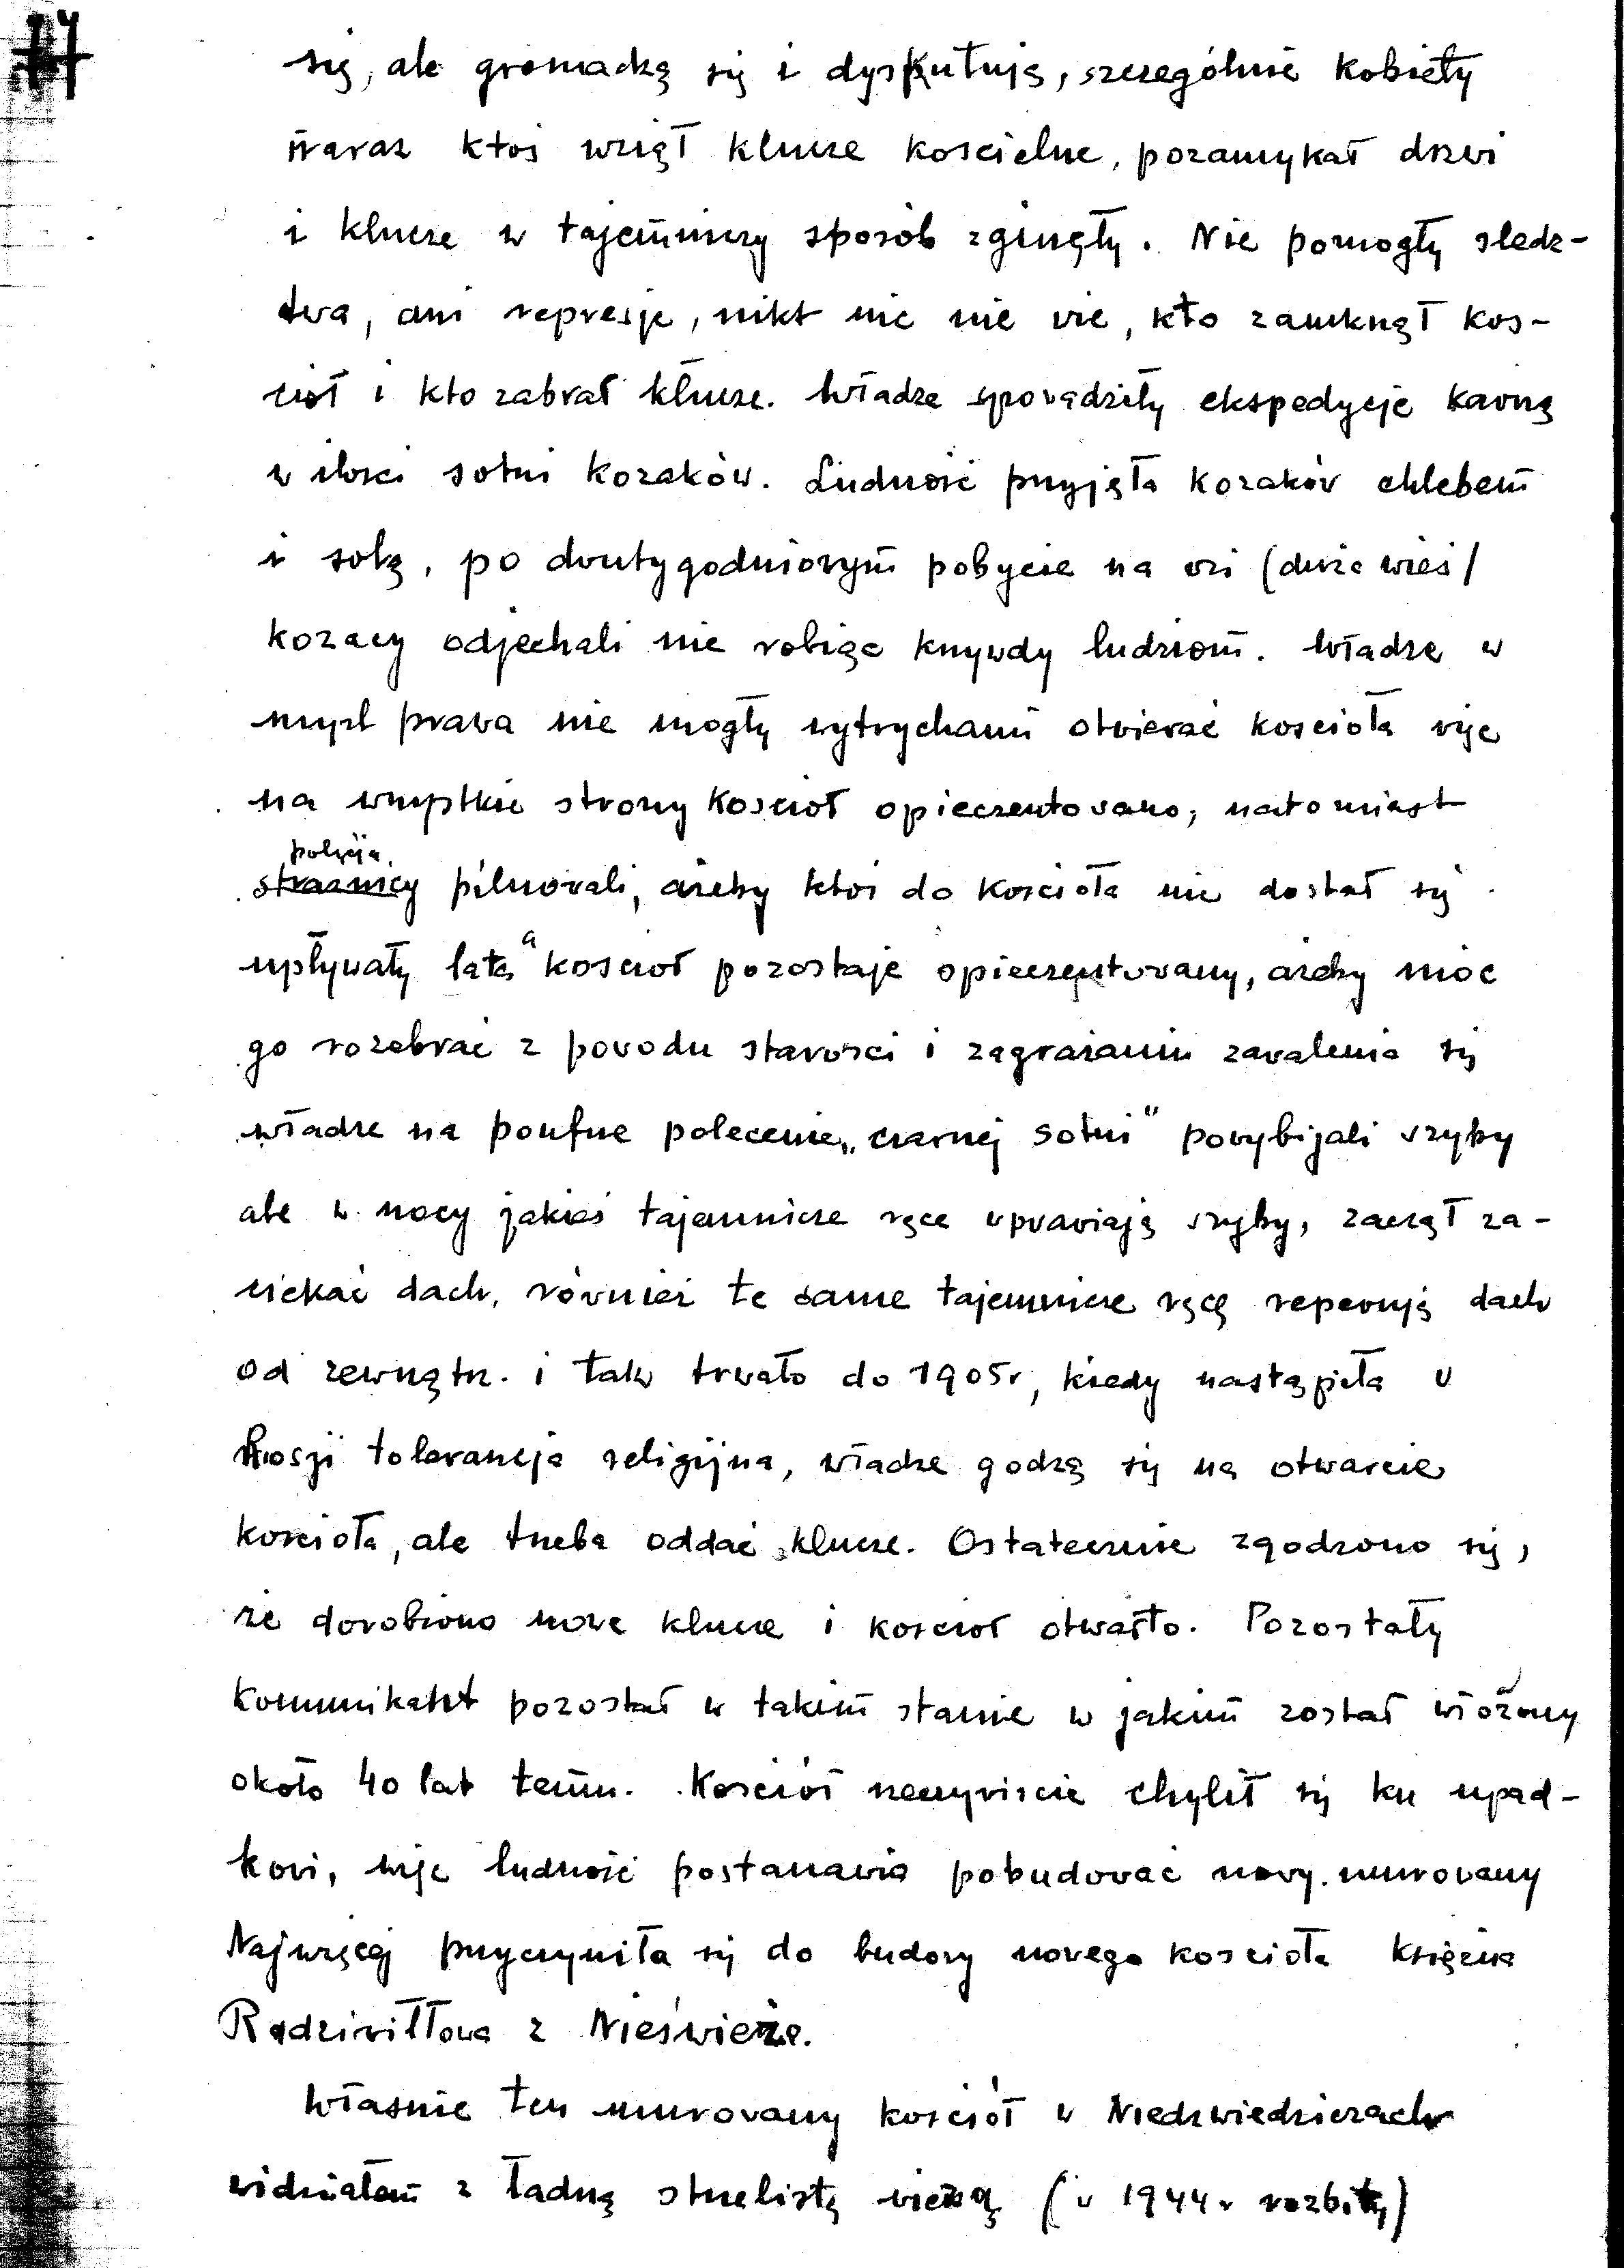 się, ale gromadzą się i dyskutują, szczególnie kobiety
naraz ktoś wziął klucze koscielne, pozamykał drzwi
i klucze w tajemniczy sposób zginęły. Nie pomogły sledz-
twa, ani represje, nikt nic nie wie, kto zamknął kos-
ciół i kto zabrał klucze. Władze sprowadziły ekspedycje karną
w ilosci sotni kozaków. Ludność przyjęła kozaków chlebem
i solą, po dwutygodniowym pobycie na wsi (duża wieś/
kozacy odjechali nie robiąc krzywdy ludziom. Władze w
myśl prawa nie mogły wytrychami otwierać koscioła więc
na wszystkie strony Koscioł opieczentowano, natomiast
policja
strażnicy pilnowali, ażeby ktoś do Koscioła nie dostał się
upływały lata a koscioł pozostaje opieczentowany, ażeby móc
go rozebrać z powodu starosci i zagrażaniu zawalenia się
władze na poufne polecenie „czarnej sotni" powybijali szyby
ale w nocy jakieś tajemnicze ręce wprawiają szyby, zaczął za-
ciekać dach, również te same tajemnicze ręcę reperują dach
od zewnątrz. i tak trwało do 1905r, kiedy nastąpiła w
Rosji tolerancja religijna, władze godzą się na otwarcie
koscioła, ale trzeba oddać klucze. Ostatecznie zgodzono się,
że dorobiono nowe klucze i koscioł otwarto. Pozostały
komunikant pozostał w takim stanie w jakim został włożony
około 40 lat temu. Koscioł rzeczywiscie chylił się ku upad-
kowi, więc ludność postanawia pobudować nowy. murowany
Najwięcej przyczyniła się do budowy nowego koscioła Księżna
Radziwiłłowa z Nieświeża.
Własnie ten murowany kosciół w Niedzwiedzicach
widziałam z ładną strzelistą wieżą (w 1944 r rozbitą)